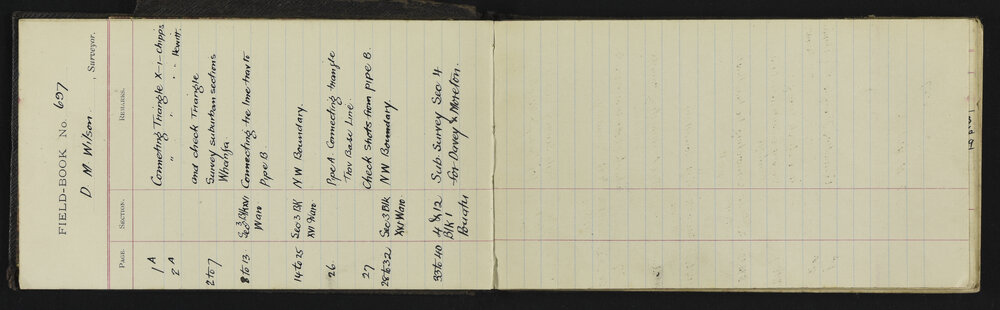 FIELD-BOOK No. 697
D M Wilson, Surveyor.
PAGE. SECTION. REMARKS.
1 A Connecting Triangle X-1-Chipps
2 A " " " " Hewitt.
and check Triangle
2 to 7 Survey suburban sections
Whanga
8 to 13 Sec 3 Blk XVI Connecting tie line trav to
Waro Pipe B
14 to 25 Sec 3 Blk NW Boundary.
XVI Waro
26. Pipe A Connecting triangle
Trav Base Line.
27 Check Shots from pipe B.
28 to 32 Sec 3 Blk NW Boundary
XVI Waro
33 to 40 4 & 12 Sub. Survey Sec 4
Blk 1 for Davey & Moreton.